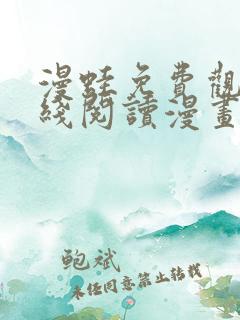 漫蛙免費觀
綫閱讀漫畫
鲍斌
未经同意禁止转载